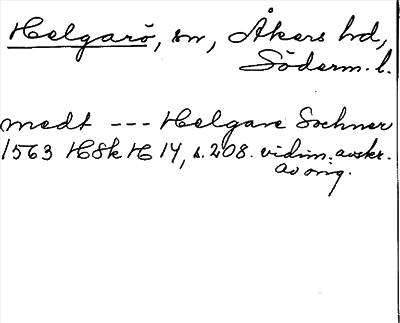 Helgarö, sn, Åkers hd,
Söderm. l.
medt --- Helgare Sochner
1563 HSk H 14, s. 208. vidim. avskr.
av orig.